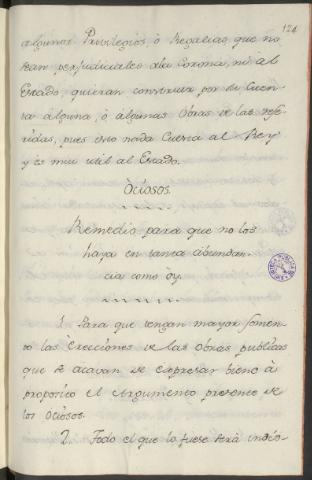 124
algunos Privilegios, ò Regalias, que no
sean perjudiciales ala Corona, ni al
Estado, quieran construir por su Cuen-
ta alguna, ò algunas Obras de las refe-
ridas, pues esto nada Cuesta al Rey
y es mui util al Estado.
Ociosos.
Remedio para que no los
haya en tanta abundan-
cia como oy.
1. Para que tengan mayor fomen-
to las Erecciones de las Obras publicas
que se acavan de expresar biene à
proposito el Argumento presente de
los Ociosos.
2. Todo el que lo fuese será indis-